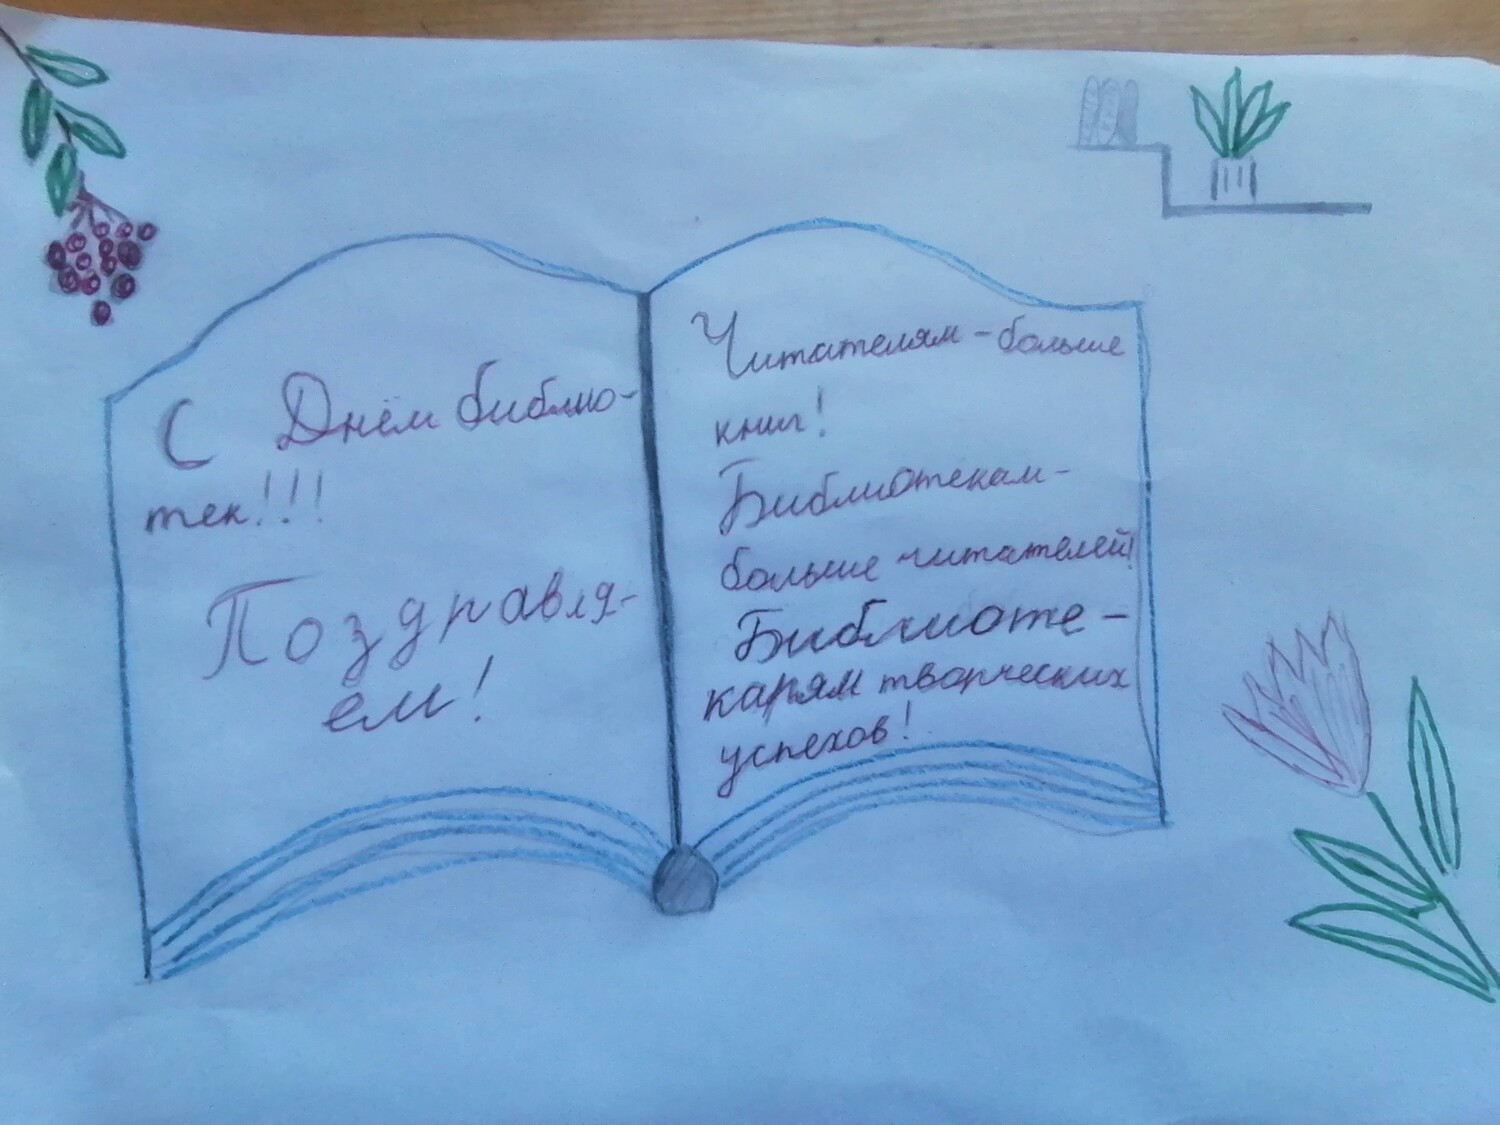 С Днём библио-
тек!!!
Поздравля-
ем!
Читателям - больше
книг!
Библиотекам-
больше читателей!
Библиоте-
карям творческих
успехов!